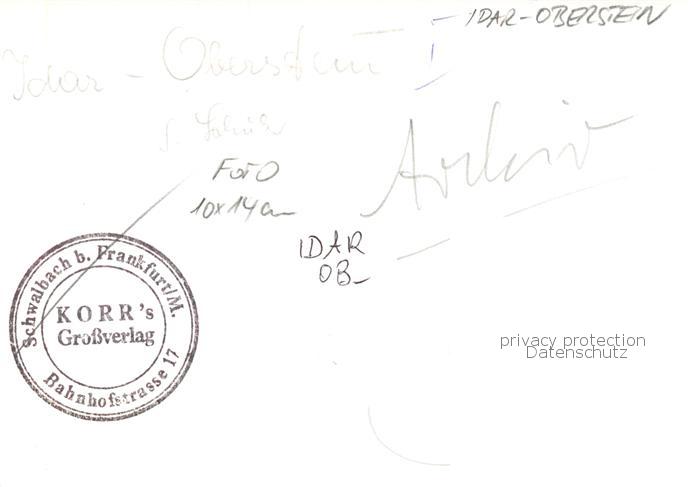 IDAR-OBERSTEIN
Idar - Oberstein I
Archiv
FOTO
10x14cm
IDAR
OB-
Schwalbach b. Frankfurt/M.
KORR's
Großverlag
Bahnhofstrasse 17
privacy protection
Datenschutz